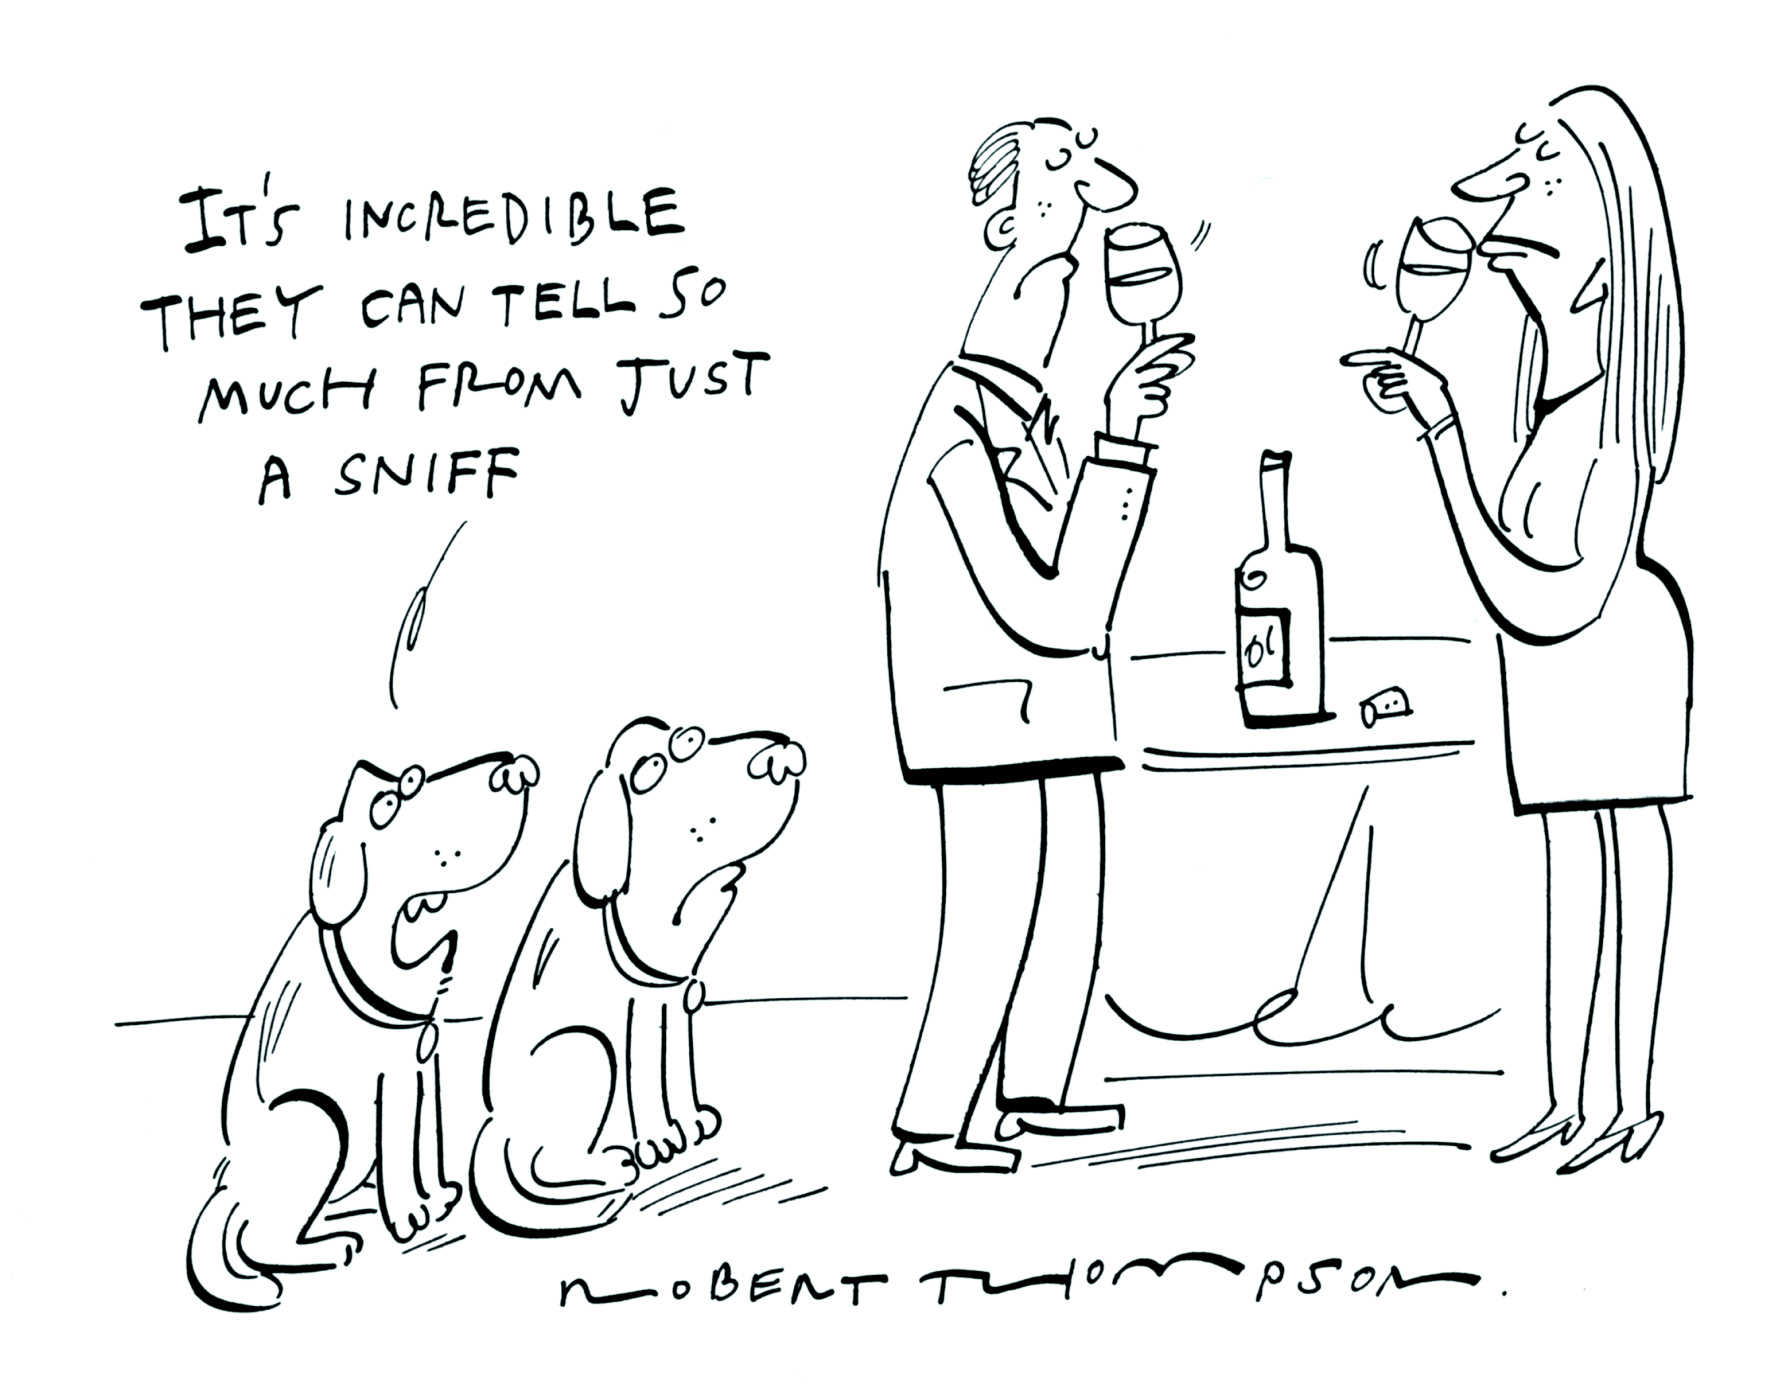 IT'S INCREDIBLE
THEY CAN TELL SO
MUCH FROM JUST
A SNIFF
ROBERT THOMPSON.